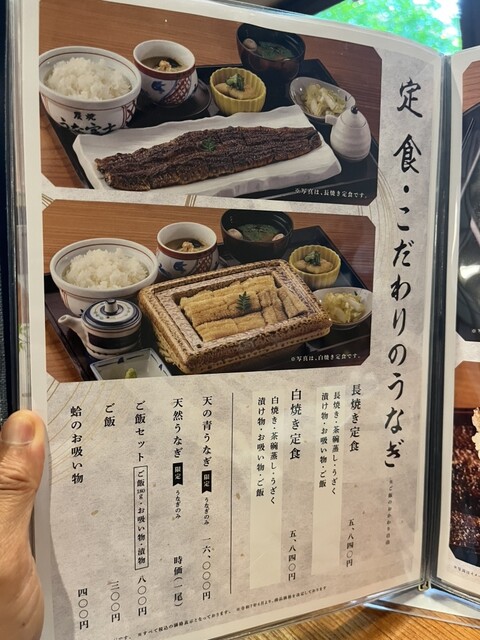 定食・こだわりのうなぎ
炭焼
うな富士
※写真は、長焼き定食です。
※写真は、白焼き定食です。
長焼き定食
長焼き・茶碗蒸し・うざく
漬け物・お吸い物・ご飯
五、八四〇円
白焼き定食
白焼き・茶碗蒸し・うざく
漬け物・お吸い物・ご飯
五、八四〇円
天の青うなぎ 限定 うなぎのみ 一六、〇〇〇円
天然うなぎ 限定 うなぎのみ 時価(一尾)
ご飯セット ご飯180g・お吸い物・漬物 八〇〇円
ご飯 三〇〇円
蛤のお吸い物 四〇〇円